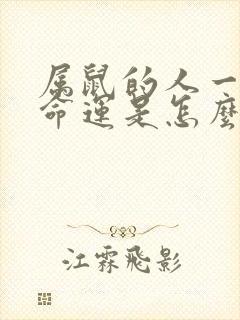 属鼠的人一
命运是怎麼
江霖飛影